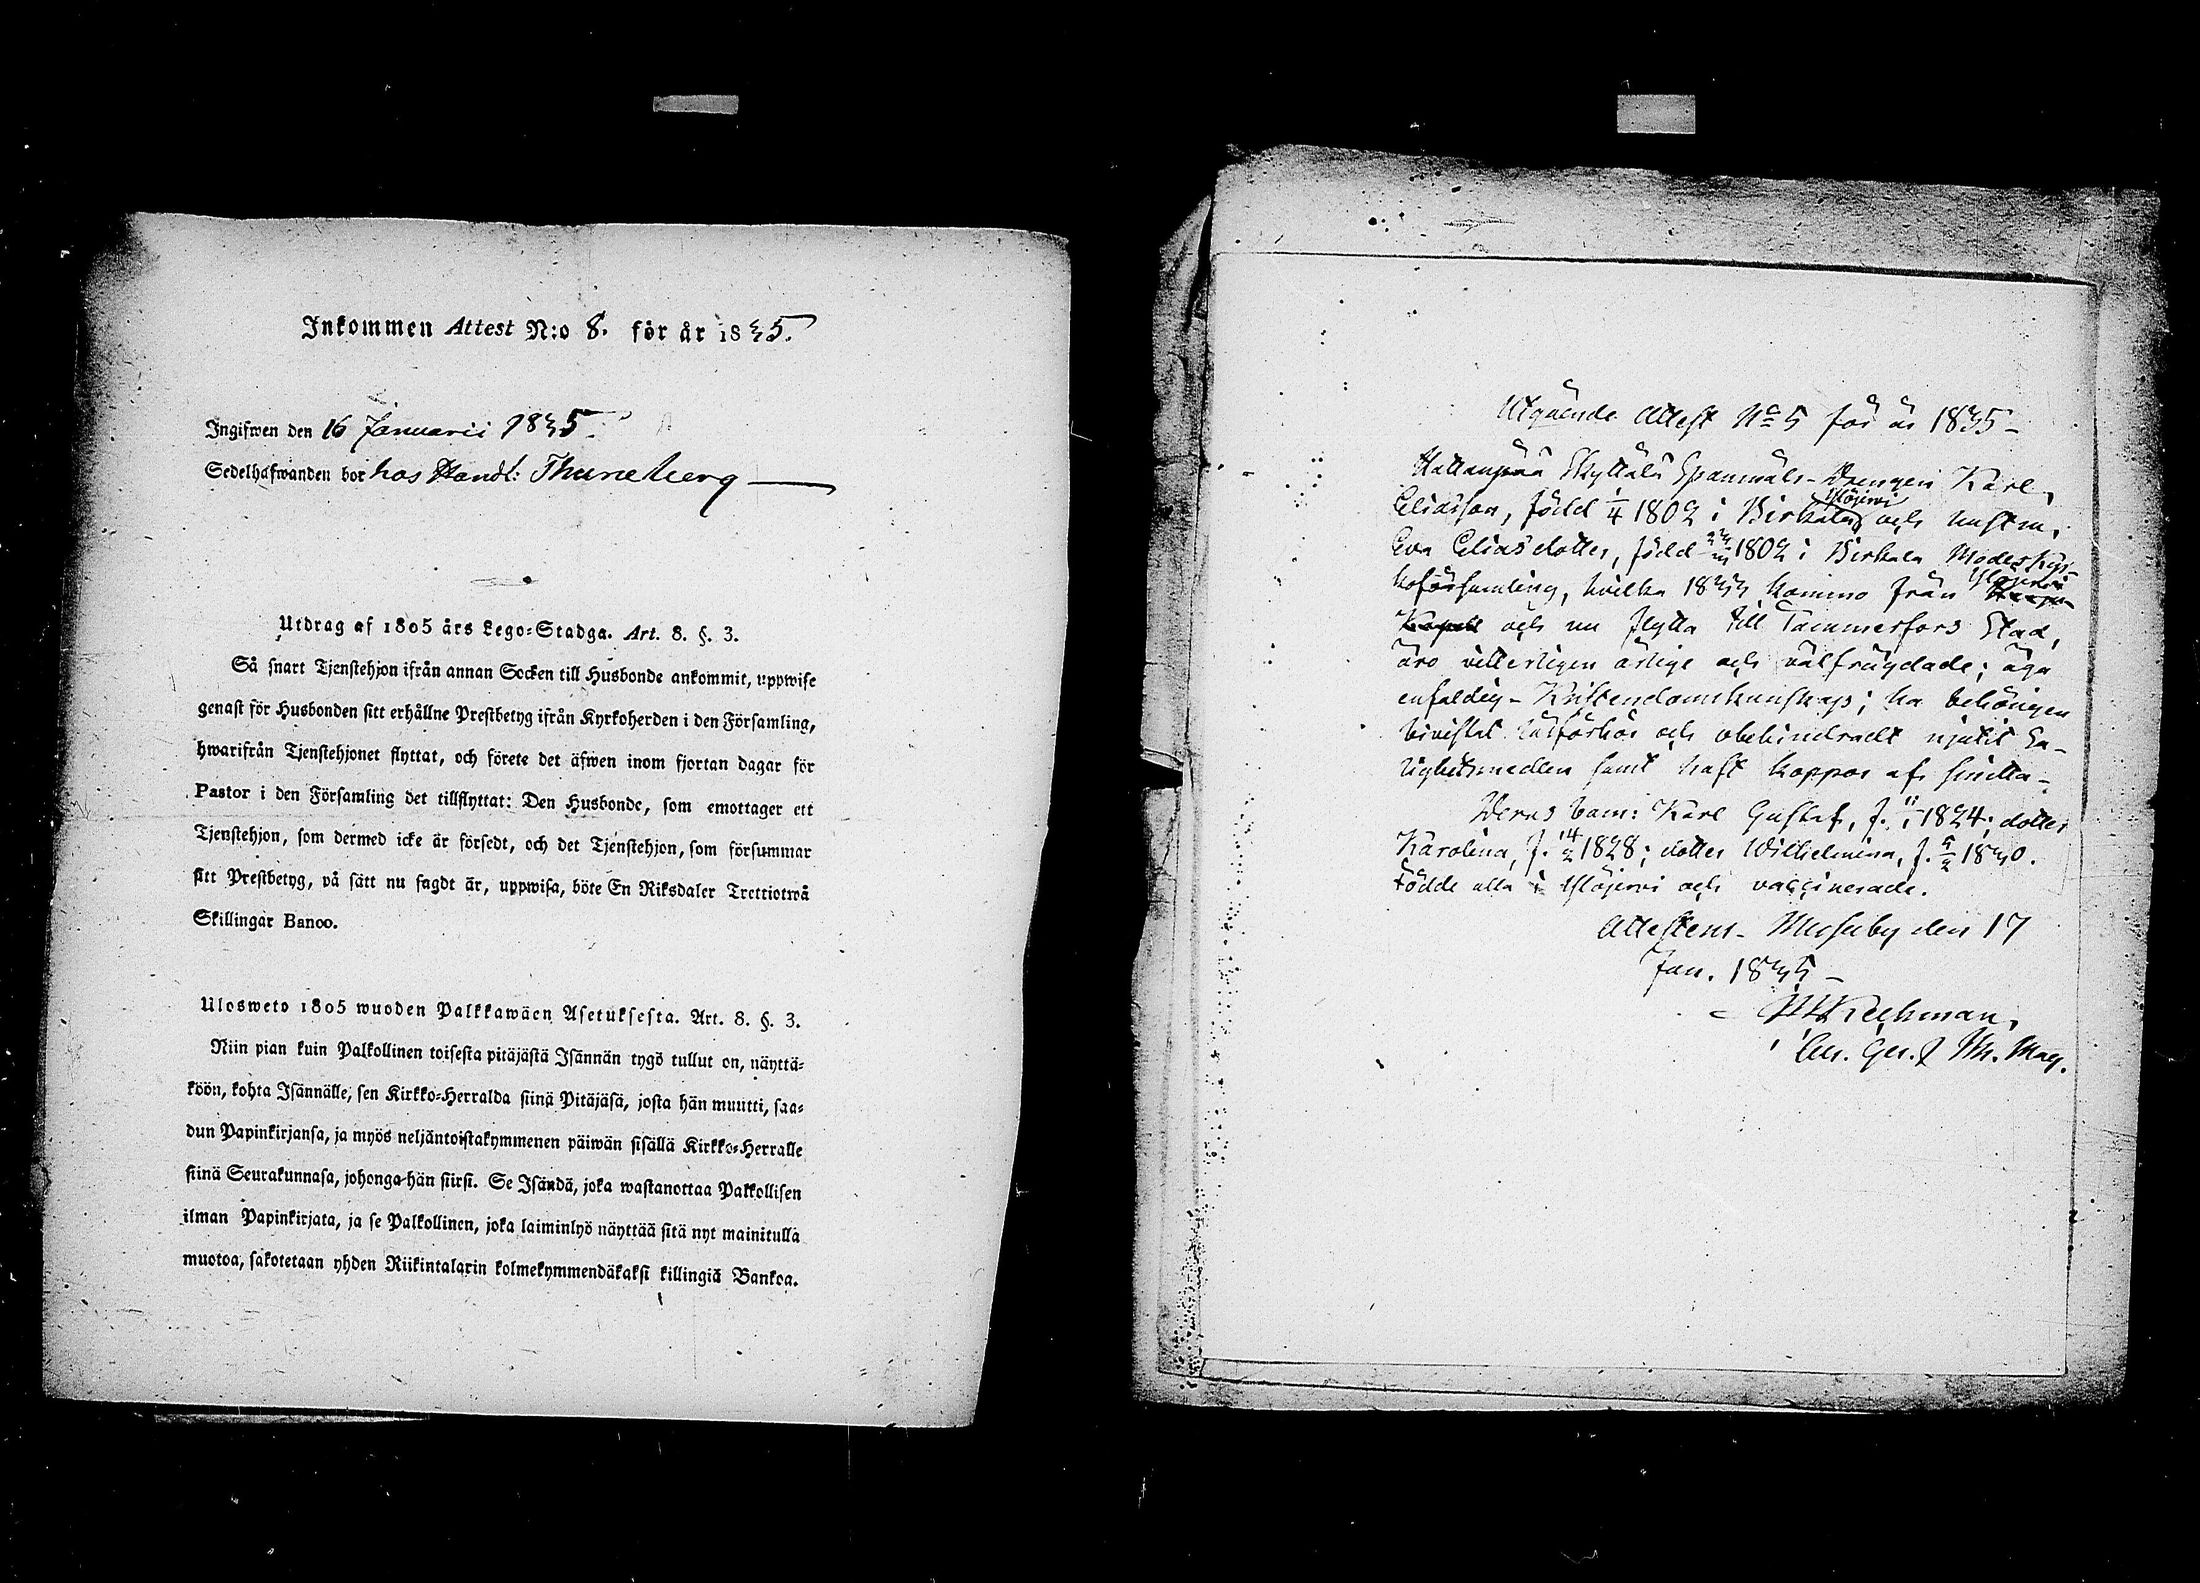 Inkommen Attest N:o 8. för år 1835.
Ingifwen den 16 Januarii 1835.
Sedelhafwanden bor hos Handl: Thuneberg
Utdrag af 1805 års Lego-Stadga. Art. 8. §. 3.
Så snart Tjenstehjon ifrån annan Socken till Husbonde ankommit, uppwise
genast för Husbonden sitt erhållne Prestbetyg ifrån Kyrkoherden i den Församling,
hwarifrån Tjenstehjonet flyttat, och förete det äfwen inom fjortan dagar för
Pastor i den Församling det tillflyttat: Den Husbonde, som emottager ett
Tjenstehjon, som dermed icke är försedt, och det Tjenstehjon, som försummar
sitt Prestbetyg, på sätt nu sagdt är, uppwisa, böte En Riksdaler Trettiotwå
Skillingar Banco.
Ulosweto 1805 wuoden Palkkawäen Asetuksesta. Art. 8. §. 3.
Niin pian kuin Palkollinen toisesta pitäjästä Isännän tygö tullut on, näyttä-
köön, kohta Isännälle, sen Kirkko-Herralda siinä Pitäjäsä, josta hän muutti, saa-
dun Papinkirjansa, ja myös neljäntoistakymmenen päiwän sisällä Kirkko-Herralle
siinä Seurakunnasa, johonga hän siirsi. Se Isändä, joka wastanottaa Palkollisen
ilman Papinkirjata, ja se Palkollinen, joka laiminlyö näyttää sitä nyt mainitulla
muotoa, sakotetaan yhden Riikintalarin kolmekymmendäkaksi killingiä Bankoa.
Utgående Attest No 5 för år 1835
Hattanpää Skyttälä Spanmåls-Drengen Karl
Eliasson, född 1/4 1802 i Birkala Ylöjervi och hustrun,
Eva Eliasdotter, född 1802 i Birkala Moderkyr-
koförsamling, hvilka 1833 kommo från Ylöjervi
Kapell och nu flytta till Tammerfors Stad,
äro vitterligen ärlige och välfrägdade; äga
enfaldig Kristendomskunskap; ha behörigen
bivistat Läsförhör och obehindradt njutit Sa-
lighetsmedlen samt haft koppor af smitta
Deras barn: Karl Gustaf, f. 1824; dotter
Karolina, f. 14/2 1828; dotter Wilhelmina, f. 1830.
Födde alla i Ylöjervi och vaccinerade.
Attesteras Messuby den 17
Jan. 1835